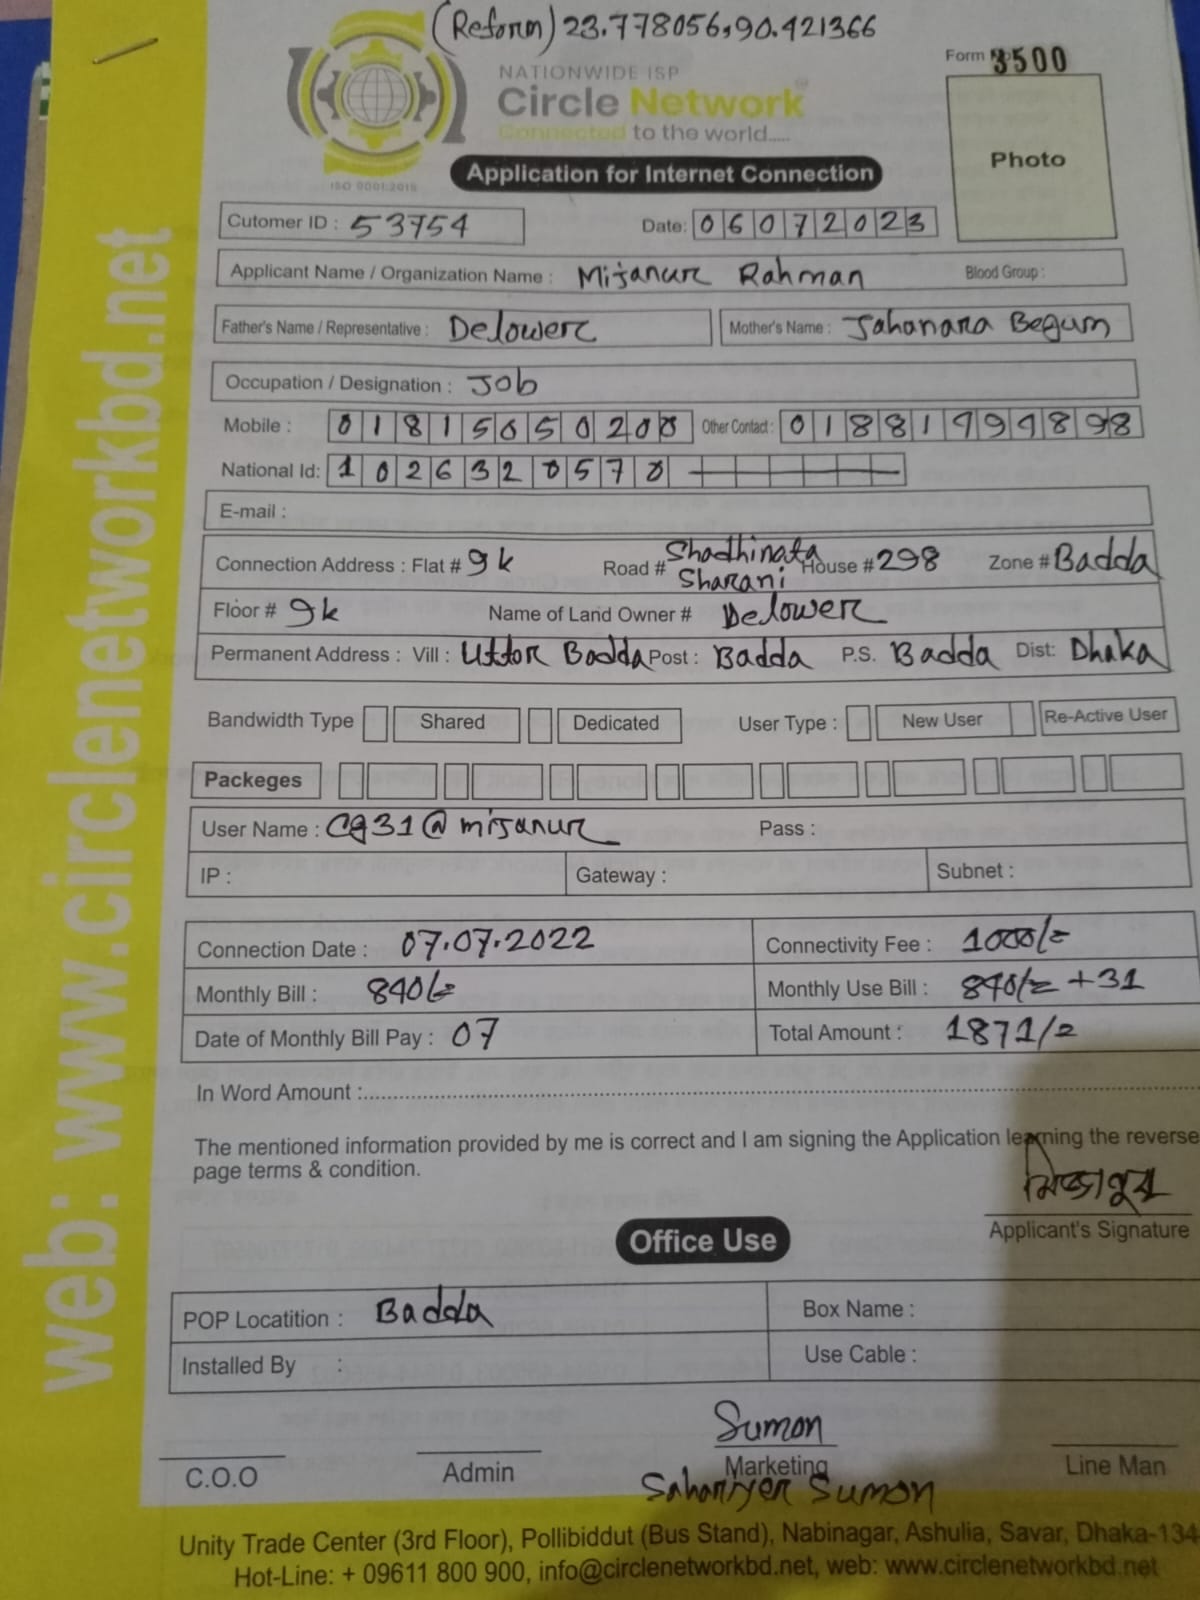 (Reform) 23.778056,90.421366
Form 3500
NATIONWIDE ISP
Circle Network
Connected to the world.....
ISO 9001:2015
Photo
Application for Internet Connection
Cutomer ID : 53754 Date: 06072023
Applicant Name / Organization Name : Mijanur Rahman Blood Group :
Father's Name / Representative : Delower Mother's Name : Jahanara Begum
Occupation / Designation : Job
Mobile : 01815050200 Other Contact : 01881999898
National Id: 1026320570
E-mail :
Connection Address : Flat # 9k Road # Shadhinata Sharani House # 298 Zone # Badda
Floor # 9k Name of Land Owner # Delower
Permanent Address : Vill : Uttor Badda Post : Badda P.S. Badda Dist: Dhaka
Bandwidth Type Shared Dedicated User Type : New User Re-Active User
Packeges
User Name : Cg31@mijanur Pass :
IP : Gateway : Subnet :
Connection Date : 07.07.2022 Connectivity Fee : 1000/=
Monthly Bill : 840/= Monthly Use Bill : 840/= +31
Date of Monthly Bill Pay : 07 Total Amount : 1871/=
In Word Amount :
The mentioned information provided by me is correct and I am signing the Application learning the reverse
page terms & condition.
মিজানুর
Applicant's Signature
Office Use
POP Locatition : Badda Box Name :
Installed By : Use Cable :
Sumon
C.O.O Admin Marketing Line Man
Sahariyer Sumon
Unity Trade Center (3rd Floor), Pollibiddut (Bus Stand), Nabinagar, Ashulia, Savar, Dhaka-134
Hot-Line: + 09611 800 900, info@circlenetworkbd.net, web: www.circlenetworkbd.net
web: www.circlenetworkbd.net